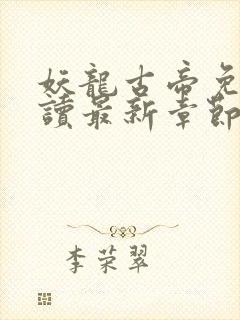 妖龍古帝免
讀最新章節
李荣翠